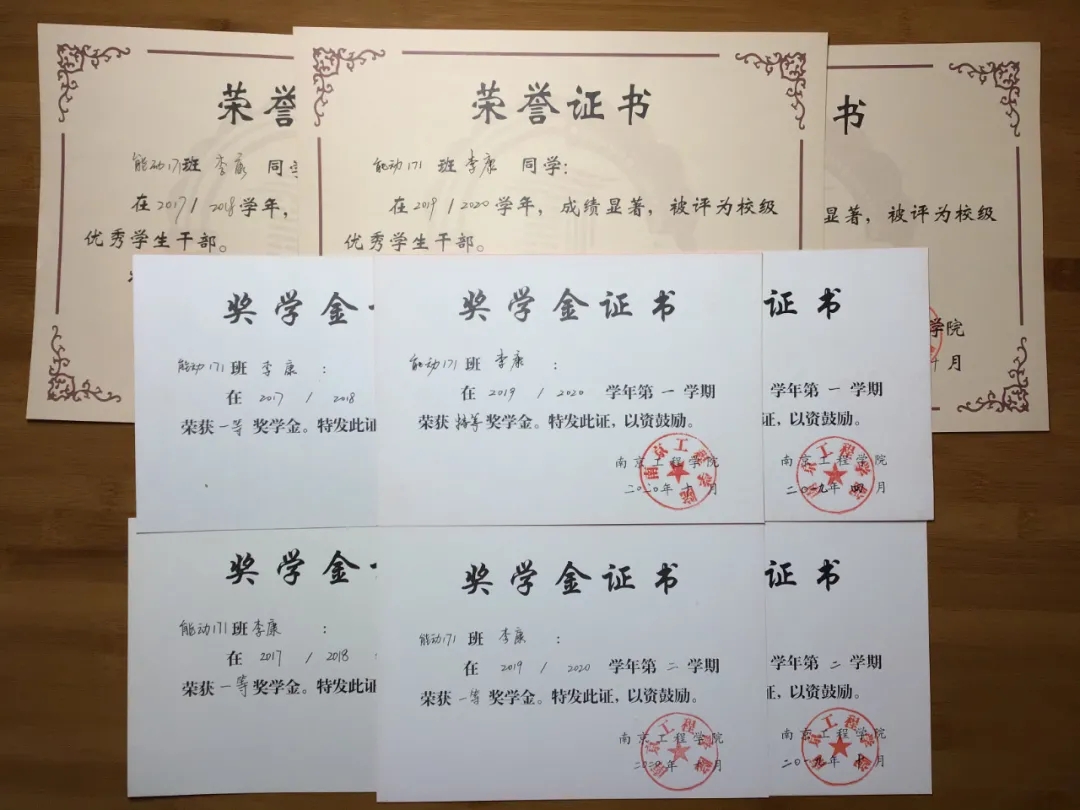 荣誉
能动171班 李康 同学
在2017/2018学年,
优秀学生干部。
荣誉证书
能动171 班 李康 同学:
在2019/2020学年, 成绩显著, 被评为校级
优秀学生干部。
书
显著, 被评为校级
学院
月
奖学金
能动171班 李康 :
在 2017 / 2018
荣获 一等 奖学金。特发此证
奖学金证书
能动171 班 李康 :
在 2019 / 2020 学年第 一 学期
荣获 特等 奖学金。特发此证, 以资鼓励。
南京工程学院
二〇二〇年 十 月
证书
学年第 一 学期
证, 以资鼓励。
南京工程学院
二〇一九年 四 月
奖学金
能动171班 李康 :
在 2017 / 2018
荣获 一等 奖学金。特发此证
奖学金证书
能动171 班 李康 :
在 2019 / 2020 学年第 二 学期
荣获 一等 奖学金。特发此证, 以资鼓励。
南京工程学院
二〇二〇年 十 月
证书
学年第 二 学期
证, 以资鼓励。
南京工程学院
二〇一九年 十 月